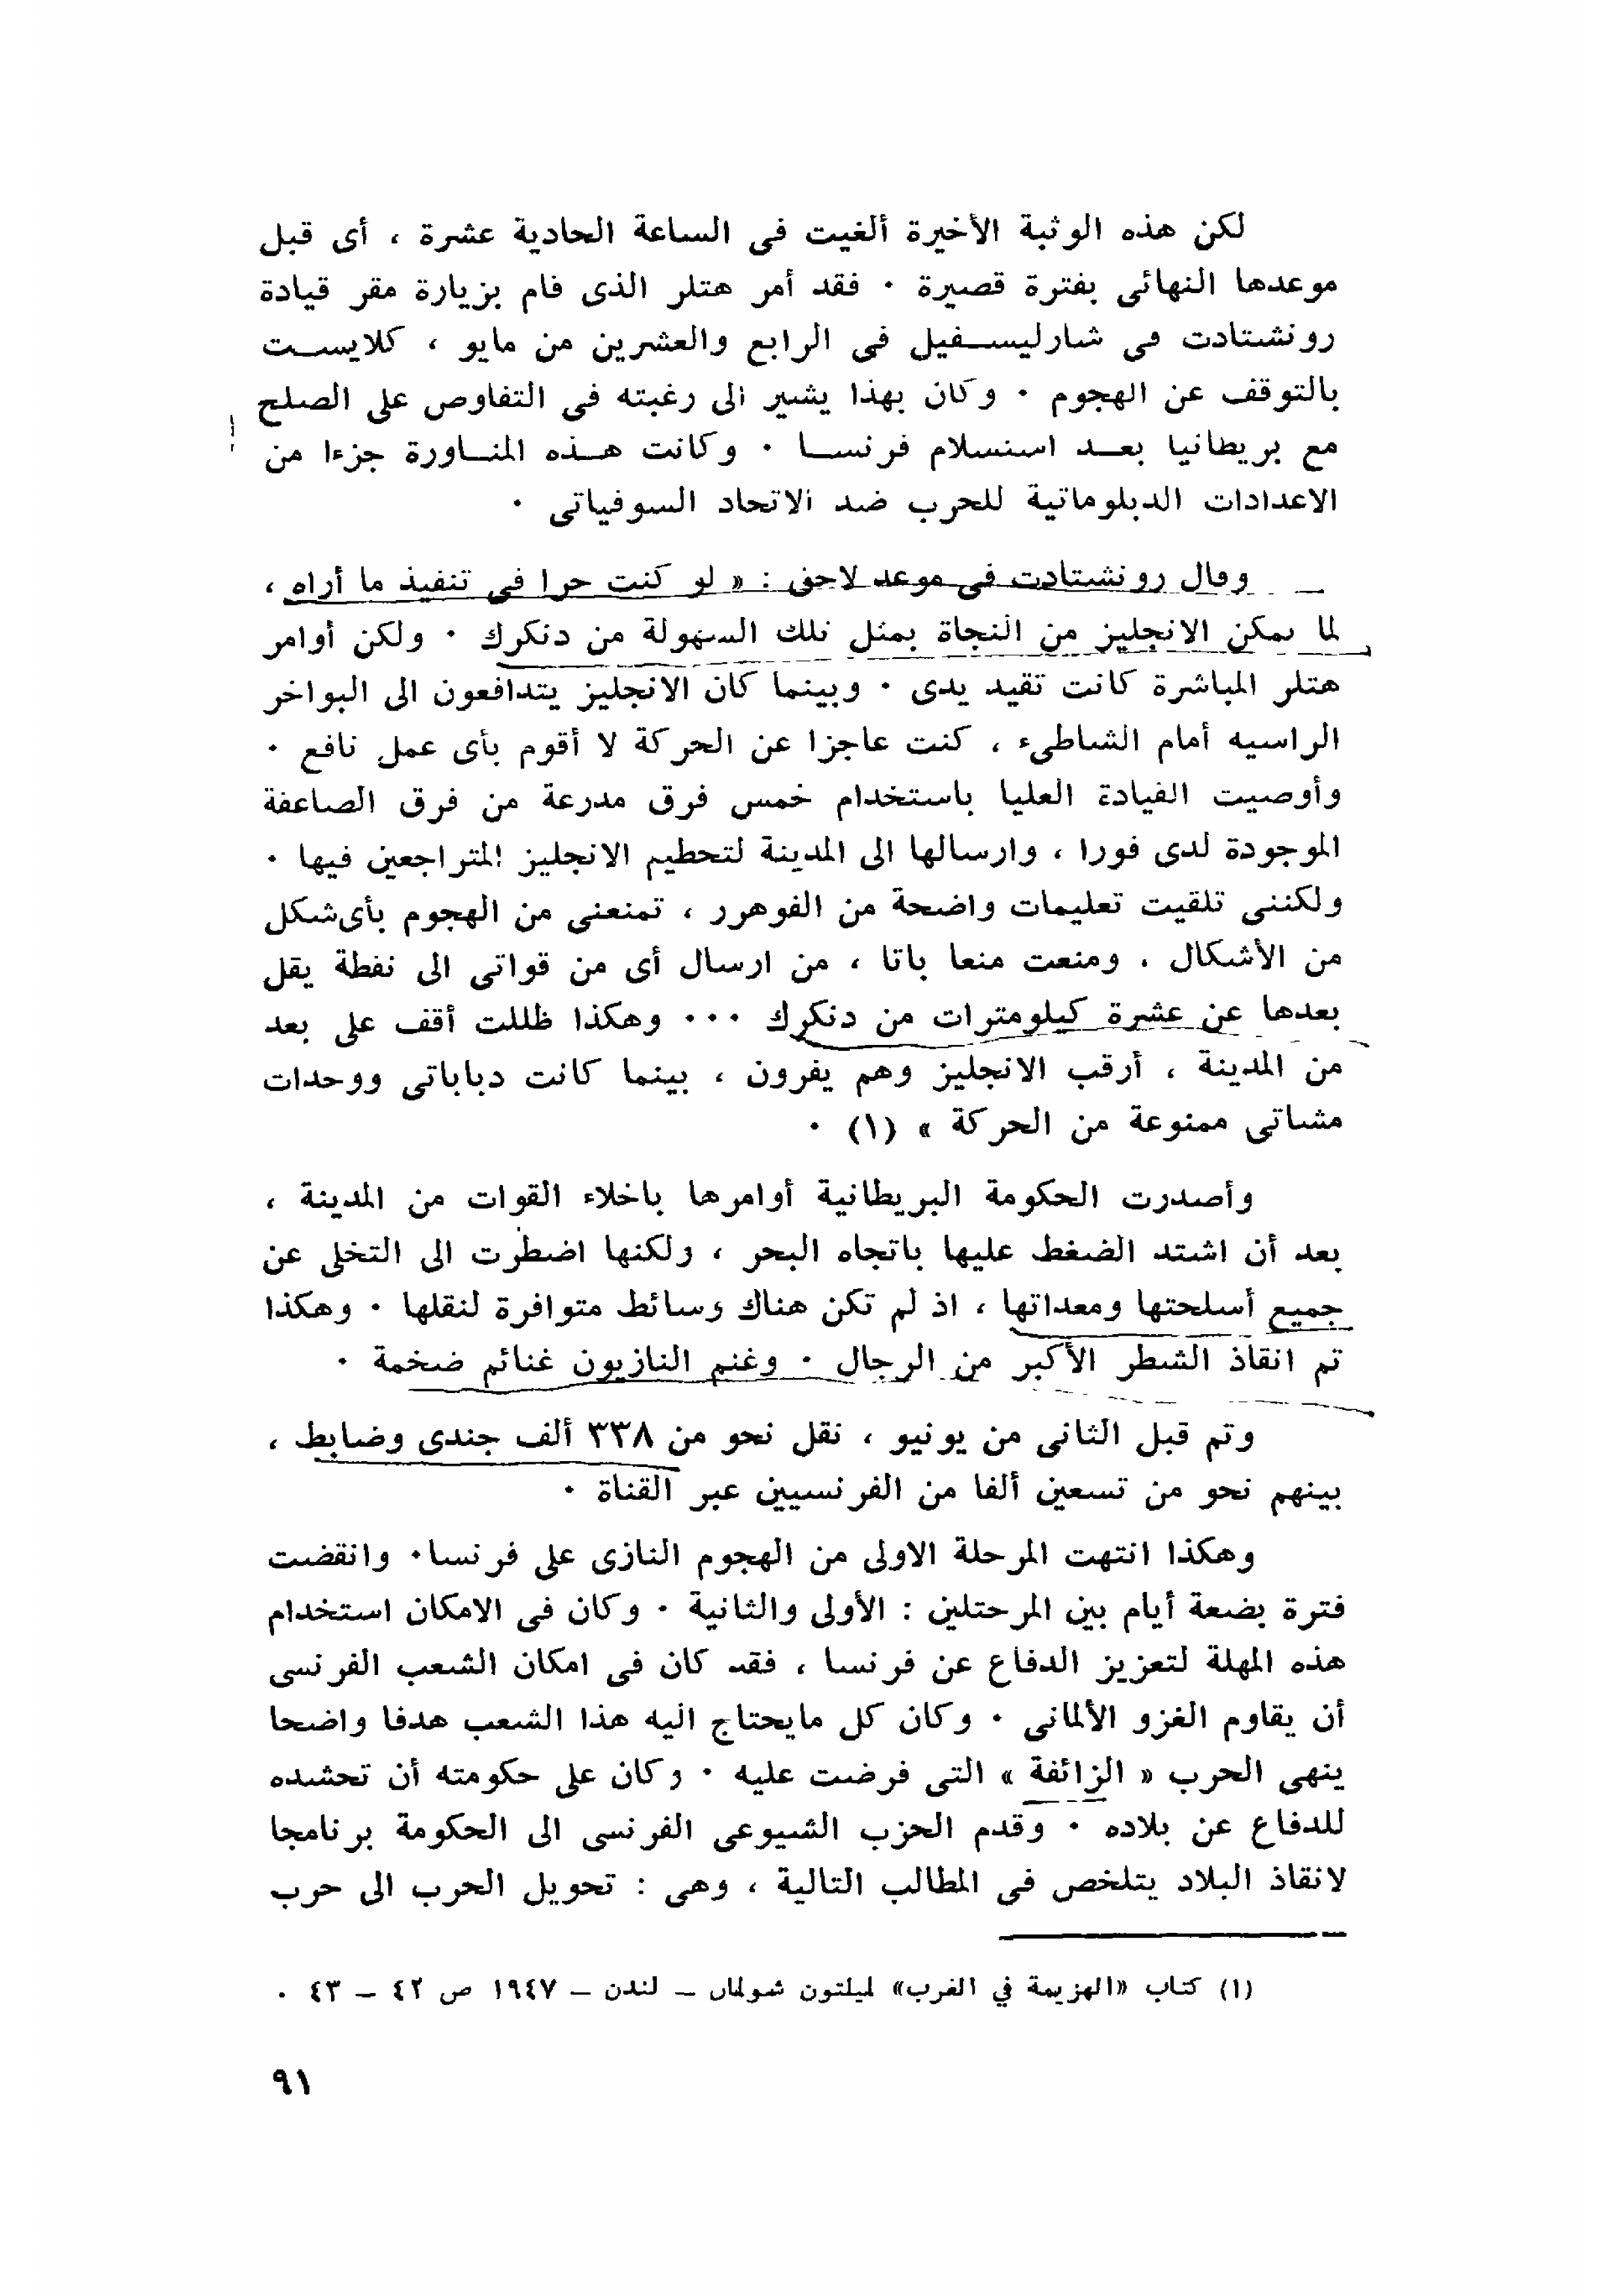 لكن هذه الوثبة الأخيرة ألغيت فى الساعة الحادية عشرة ، أى قبل
موعدها النهائى بفترة قصيرة · فقد أمر هتلر الذى قام بزيارة مقر قيادة
رونشتادت فى شارليسفيل فى الرابع والعشرين من مايو ، كلايست
بالتوقف عن الهجوم · وكان بهذا يشير الى رغبته فى التفاوض على الصلح
مع بريطانيا بعد استسلام فرنسا · وكانت هذه المناورة جزءا من
الاعدادات الدبلوماتية للحرب ضد الاتحاد السوفياتى ·
وقال رونشتادت فى موعد لاحق : « لو كنت حرا فى تنفيذ ما أراه ،
لما يمكن الانجليز من النجاة بمثل تلك السهولة من دنكرك · ولكن أوامر
هتلر المباشرة كانت تقيد يدى · وبينما كان الانجليز يتدافعون الى البواخر
الراسيه أمام الشاطىء ، كنت عاجزا عن الحركة لا أقوم بأى عمل نافع ·
وأوصيت القيادة العليا باستخدام خمس فرق مدرعة من فرق الصاعقة
الموجودة لدى فورا ، وارسالها الى المدينة لتحطيم الانجليز المتراجعين فيها ·
ولكننى تلقيت تعليمات واضحة من الفوهرر ، تمنعنى من الهجوم بأى شكل
من الأشكال . ومنعت منعا باتا ، من ارسال أى من قواتى الى نقطة يقل
بعدها عن عشرة كيلومترات من دنكرك ··· وهكذا ظللت أقف على بعد
من المدينة ، أرقب الانجليز وهم يفرون ، بينما كانت دباباتى ووحدات
مشاتى ممنوعة من الحركة » (١) ·
وأصدرت الحكومة البريطانية أوامرها باخلاء القوات من المدينة ،
بعد أن اشتد الضغط عليها باتجاه البحر ، ولكنها اضطرت الى التخلى عن
جميع أسلحتها ومعداتها ، اذ لم تكن هناك وسائط متوافرة لنقلها · وهكذا
تم انقاذ الشطر الأكبر من الرجال · وغنم النازيون غنائم ضخمة ·
وتم قبل الثانى من يونيو ، نقل نحو من ٣٣٨ ألف جندى وضابط ،
بينهم نحو من تسعين ألفا من الفرنسيين عبر القناة ·
وهكذا انتهت المرحلة الاولى من الهجوم النازى على فرنسا · وانقضت
فترة بضعة أيام بين المرحتلين : الأولى والثانية · وكان فى الامكان استخدام
هذه المهلة لتعزيز الدفاع عن فرنسا ، فقد كان فى امكان الشعب الفرنسى
أن يقاوم الغزو الألمانى · وكان كل مايحتاج اليه هذا الشعب هدفا واضحا
ينهى الحرب « الزائفة » التى فرضت عليه · وكان على حكومته أن تحشده
للدفاع عن بلاده · وقدم الحزب الشيوعى الفرنسى الى الحكومة برنامجا
لانقاذ البلاد يتلخص فى المطالب التالية ، وهى : تحويل الحرب الى حرب
(١) كتاب «الهزيمة في الغرب» لميلتون شولمان – لندن – ١٩٤٧ ص ٤٢ – ٤٣ ·
٩١